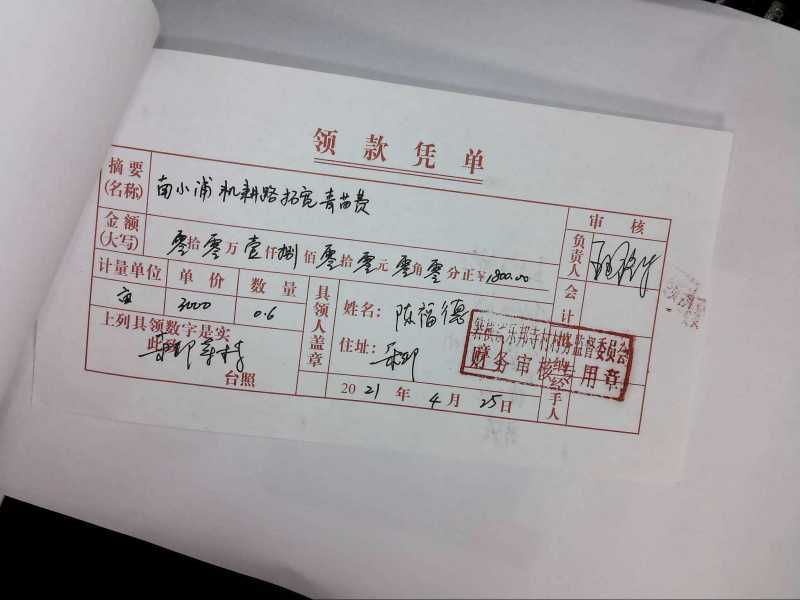 领款凭单
摘要(名称) 南小浦机耕路拓宽青苗费
审核
金额(大写) 零拾零万壹仟捌佰零拾零元零角零分正¥1800.00
负责人
计量单位 单价 数量
亩 3000 0.6
会计
上列具领数字是实
此致
台照
具领人盖章
姓名: 陈福德
住址: 乐邦
乐邦寺村村务监督委员会
财务审核专用章
经手人
2021年4月25日